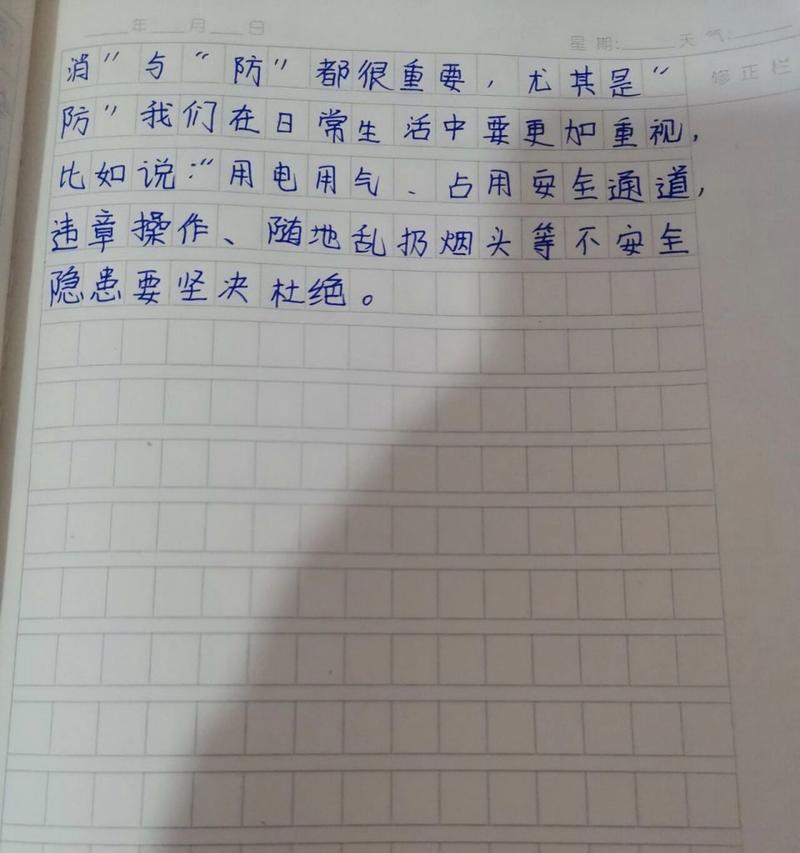 ____年____月____日
星期:____天气:____
修正栏
消”与“防”都很重要，尤其是“
防”我们在日常生活中要更加重视，
比如说：“用电用气、占用安全通道，
违章操作、随地乱扔烟头等不安全
隐患要坚决杜绝。